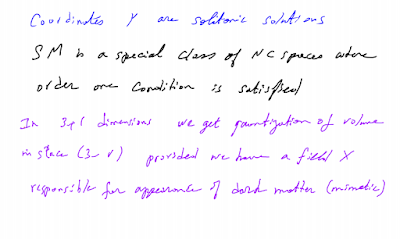 Coordinates Y are solitonic solutions
SM is a special class of NC spaces where
order one condition is satisfied
In 3+1 dimensions we get quantization of volume
in space (3-d) provided we have a field X
responsible for appearance of dark matter (mimetic)